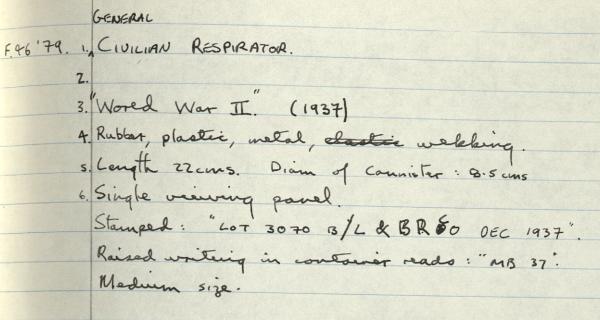 GENERAL
F.46'79. 1. CIVILIAN RESPIRATOR.
2.
3. "World War II". (1937)
4. Rubber, plastic, metal, elastic webbing.
5. Length 22cms. Diam of Cannister: 8.5cms
6. Single viewing panel.
Stamped: "LOT 3070 B/L & BR 60 DEC 1937".
Raised writing in container reads: "MB 37".
Medium size.